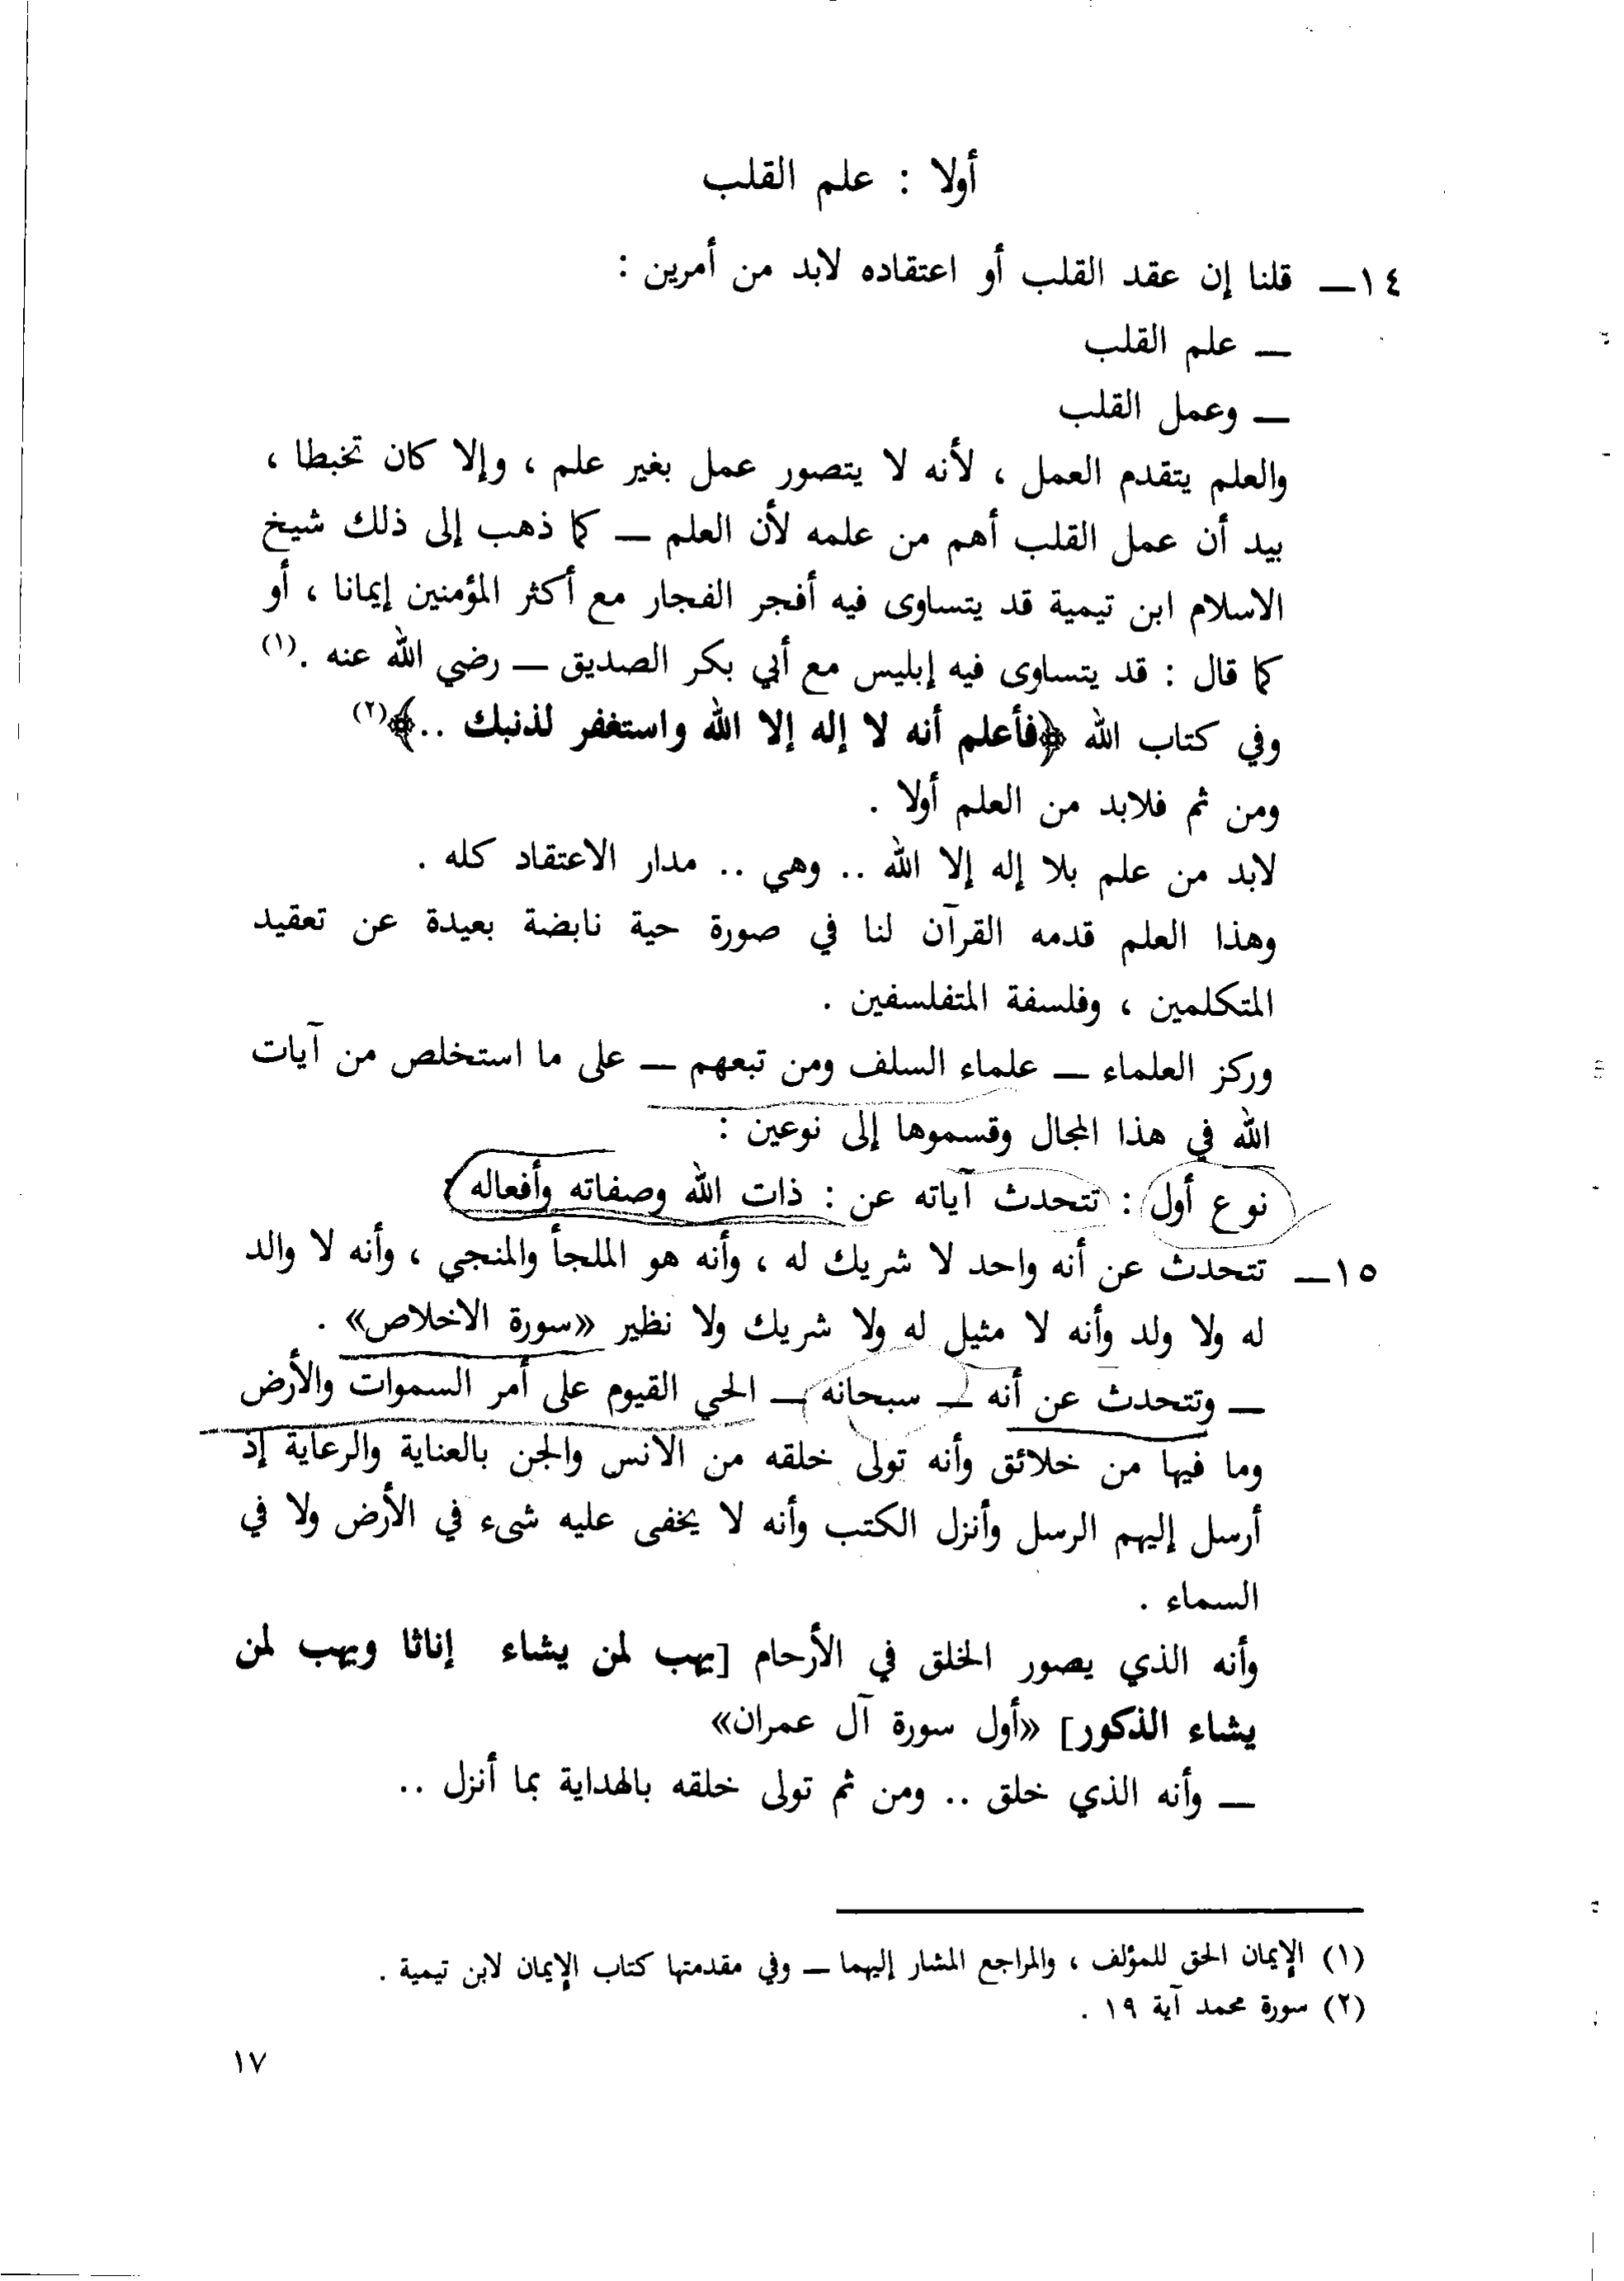 أولا : علم القلب
١٤ـ قلنا إن عقد القلب أو اعتقاده لابد من أمرين :
ـ علم القلب
ـ وعمل القلب
والعلم يتقدم العمل ، لأنه لا يتصور عمل بغير علم ، وإلا كان تخبطا ،
بيد أن عمل القلب أهم من علمه لأن العلم ـ كما ذهب إلى ذلك شيخ
الاسلام ابن تيمية قد يتساوى فيه أفجر الفجار مع أكثر المؤمنين إيمانا ، أو
كما قال : قد يتساوى فيه إبليس مع أبي بكر الصديق ـ رضي الله عنه .(١)
وفي كتاب الله ﴿فأعلم أنه لا إله إلا الله واستغفر لذنبك ..﴾(٢)
ومن ثم فلابد من العلم أولا .
لابد من علم بلا إله إلا الله .. وهي .. مدار الاعتقاد كله .
وهذا العلم قدمه القرآن لنا في صورة حية نابضة بعيدة عن تعقيد
المتكلمين ، وفلسفة المتفلسفين .
وركز العلماء ـ علماء السلف ومن تبعهم ـ على ما استخلص من آيات
الله في هذا المجال وقسموها إلى نوعين :
نوع أول : تتحدث آياته عن : ذات الله وصفاته وأفعاله :
١٥ـ تتحدث عن أنه واحد لا شريك له ، وأنه هو الملجأ والمنجي ، وأنه لا والد
له ولا ولد وأنه لا مثيل له ولا شريك ولا نظير «سورة الاخلاص» .
ـ وتتحدث عن أنه ـ سبحانه ـ الحي القيوم على أمر السموات والأرض
وما فيها من خلائق وأنه تولى خلقه من الانس والجن بالعناية والرعاية إذ
أرسل إليهم الرسل وأنزل الكتب وأنه لا يخفى عليه شىء في الأرض ولا في
السماء .
وأنه الذي يصور الخلق في الأرحام [يهب لمن يشاء إناثا ويهب لمن
يشاء الذكور] «أول سورة آل عمران»
ـ وأنه الذي خلق .. ومن ثم تولى خلقه بالهداية بما أنزل ..
(١) الإيمان الحق للمؤلف ، والمراجع المشار إليهما ـ وفي مقدمتها كتاب الإيمان لابن تيمية .
(٢) سورة محمد آية ١٩ .
١٧